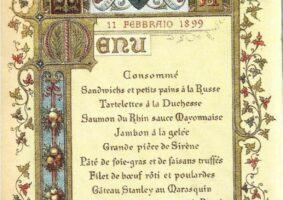 11 FEBBRAIO 1899
Menu
Consommé
Sandwichs et petits pains à la Russe
Tartelettes à la Duchesse
Saumon du Rhin sauce Mayonnaise
Jambon à la gelée
Grande pièce de Sirène
Pâté de foie-gras et de faisans truffés
Filet de bœuf rôti et poulardes
Gâteau Stanley au Marasquin